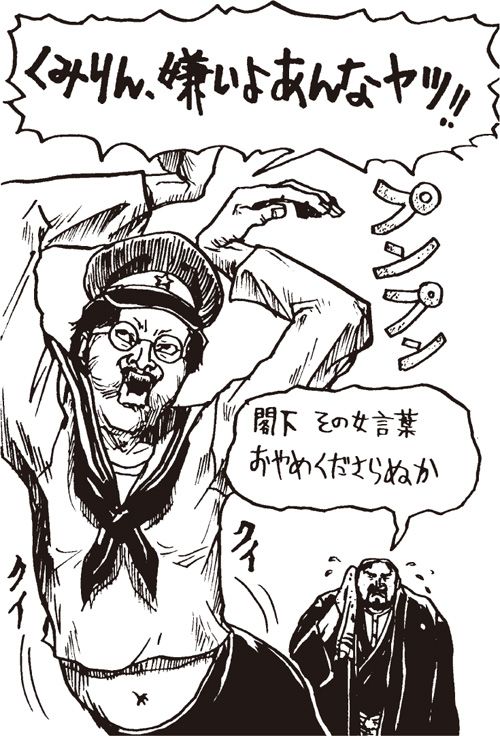 くみりん、嫌いよあんなヤツ!!
プンプン
閣下 その女言葉
おやめくださらぬか
クイ
クイ